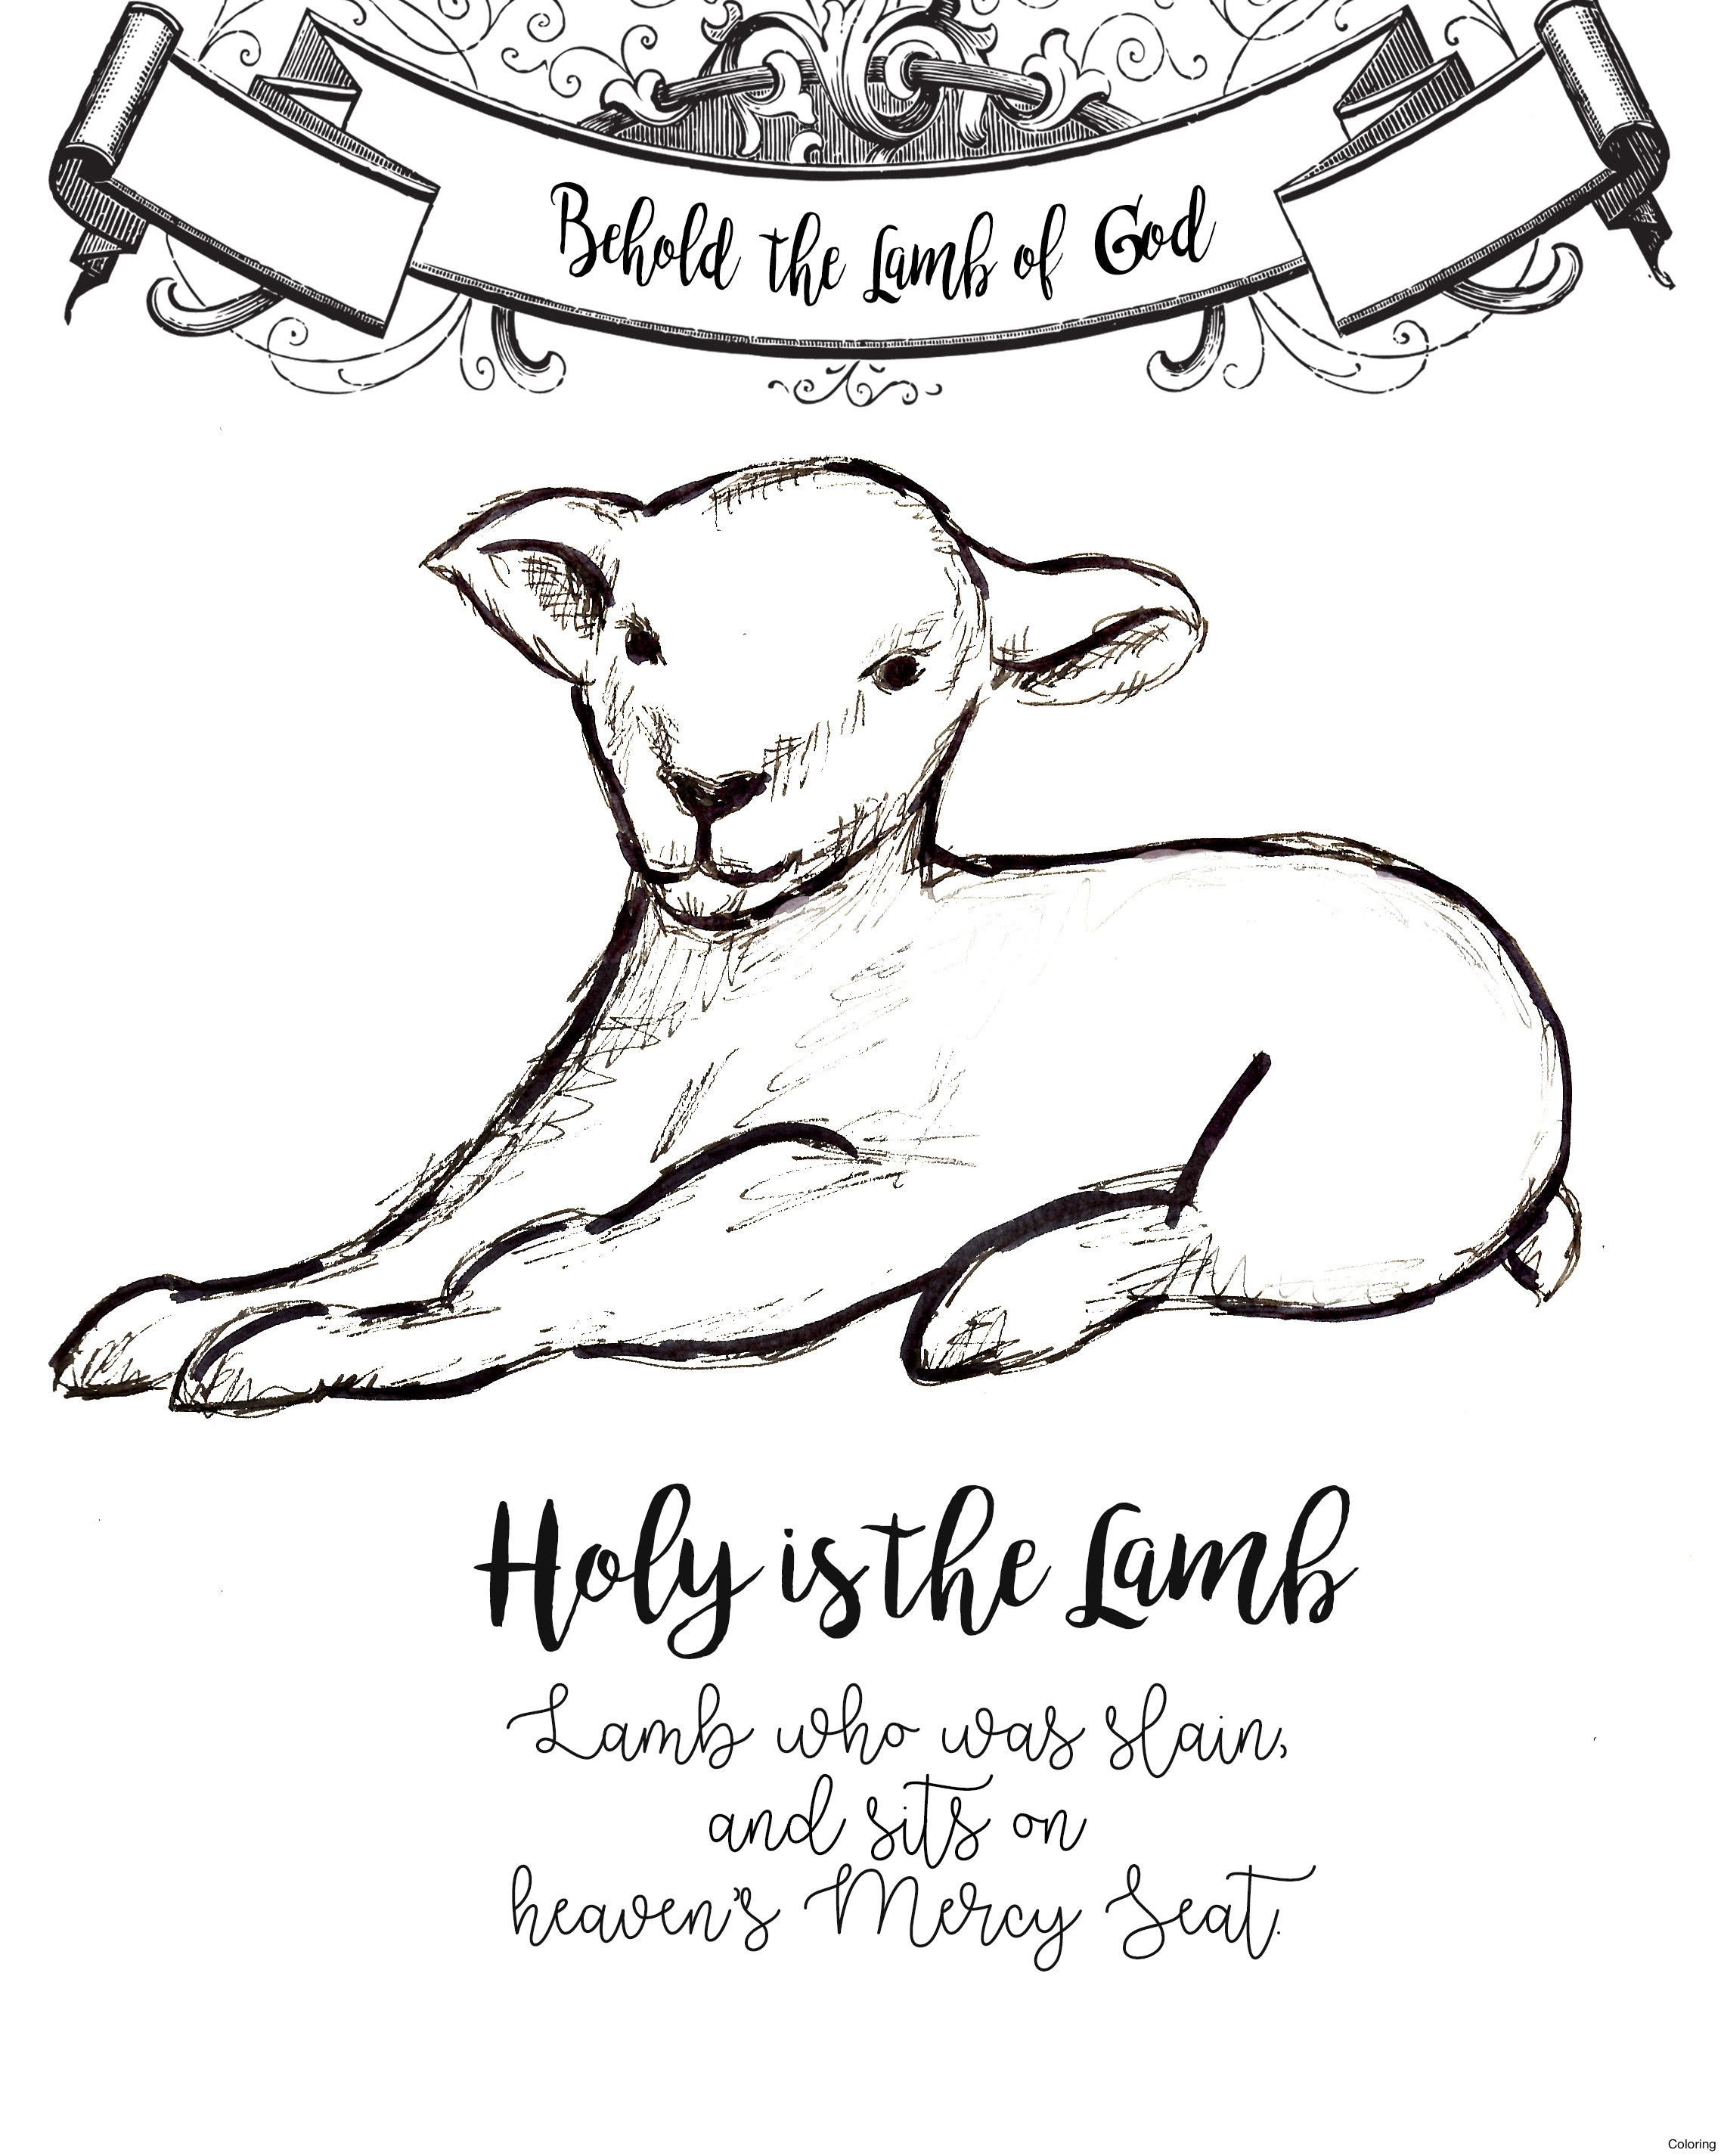 Behold the Lamb of God
Holy is the Lamb
Lamb who was slain,
and sits on
heaven's Mercy Seat.
Coloring